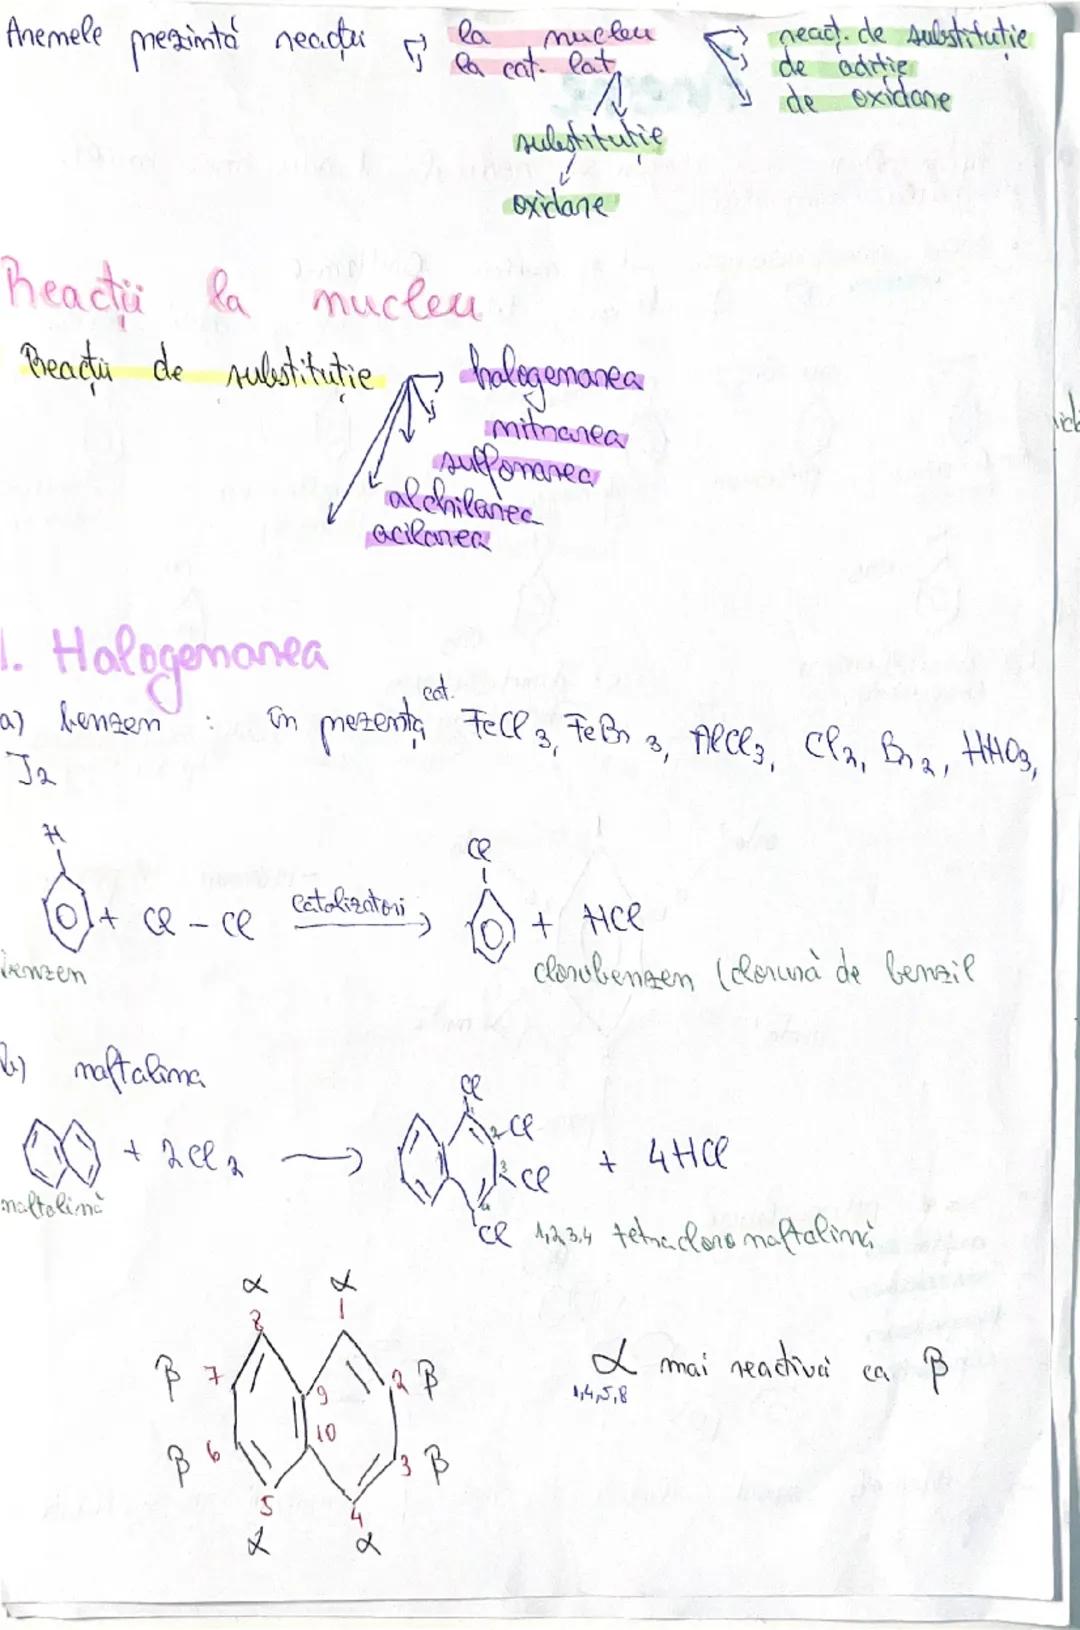 Arenele prezintă reacții la nucleu react. de substituție
la cat. lat. de adiție
de oxidare
substituție
oxidare
Reacții la nucleu
Reacții de substituție halogenarea
nitrarea
sulfonarea
alchilarea
acilarea
1. Halogenarea
a) benzen : în prezență cat. FeCl3, FeBr3, AlCl3, Cl2, Br2, HNO3,
I2
H Cl
+ Cl - Cl catalizatori + HCl
benzen clorobenzen (clorură de benzil
b) naftalina
Cl
+ 2Cl2 2 Cl + 4HCl
3 Cl
4
naftalină Cl 1,2,3,4 tetracloronaftalină
α α
8 1
β 7 2 β α mai reactivă ca β
9 1,4,5,8
10
β 6 3 β
5 4
α α